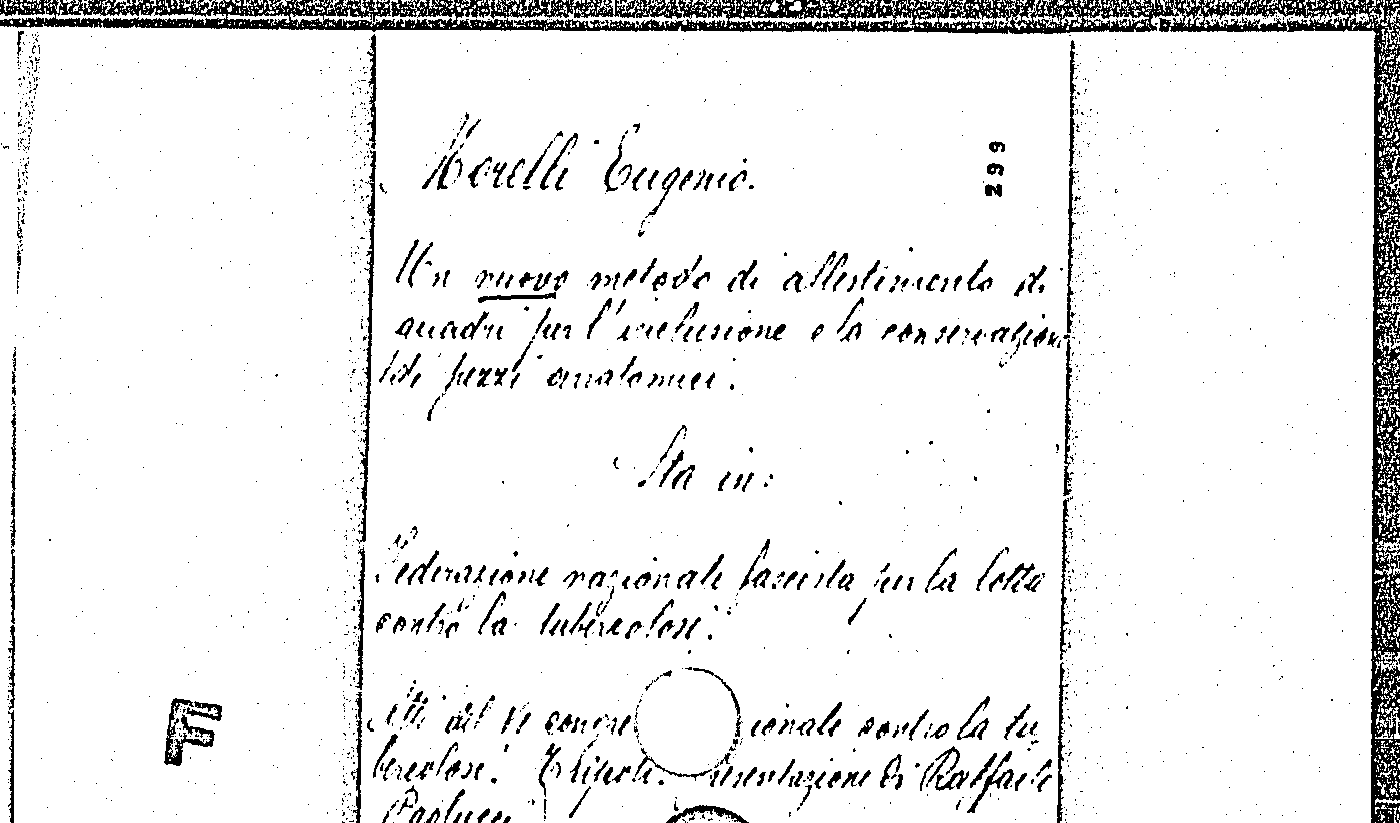 Morelli Eugenio.
299
Un nuovo metodo di allestimento di
quadri per l'inclusione e la conservazione
di pezzi anatomici.
Sta in:
Federazione nazionale fascista per la lotta
contro la tubercolosi.
Atti del congre ionale contro la tu-
bercolosi. Tripoli. esentazione di Raffaele
Paolucci
F